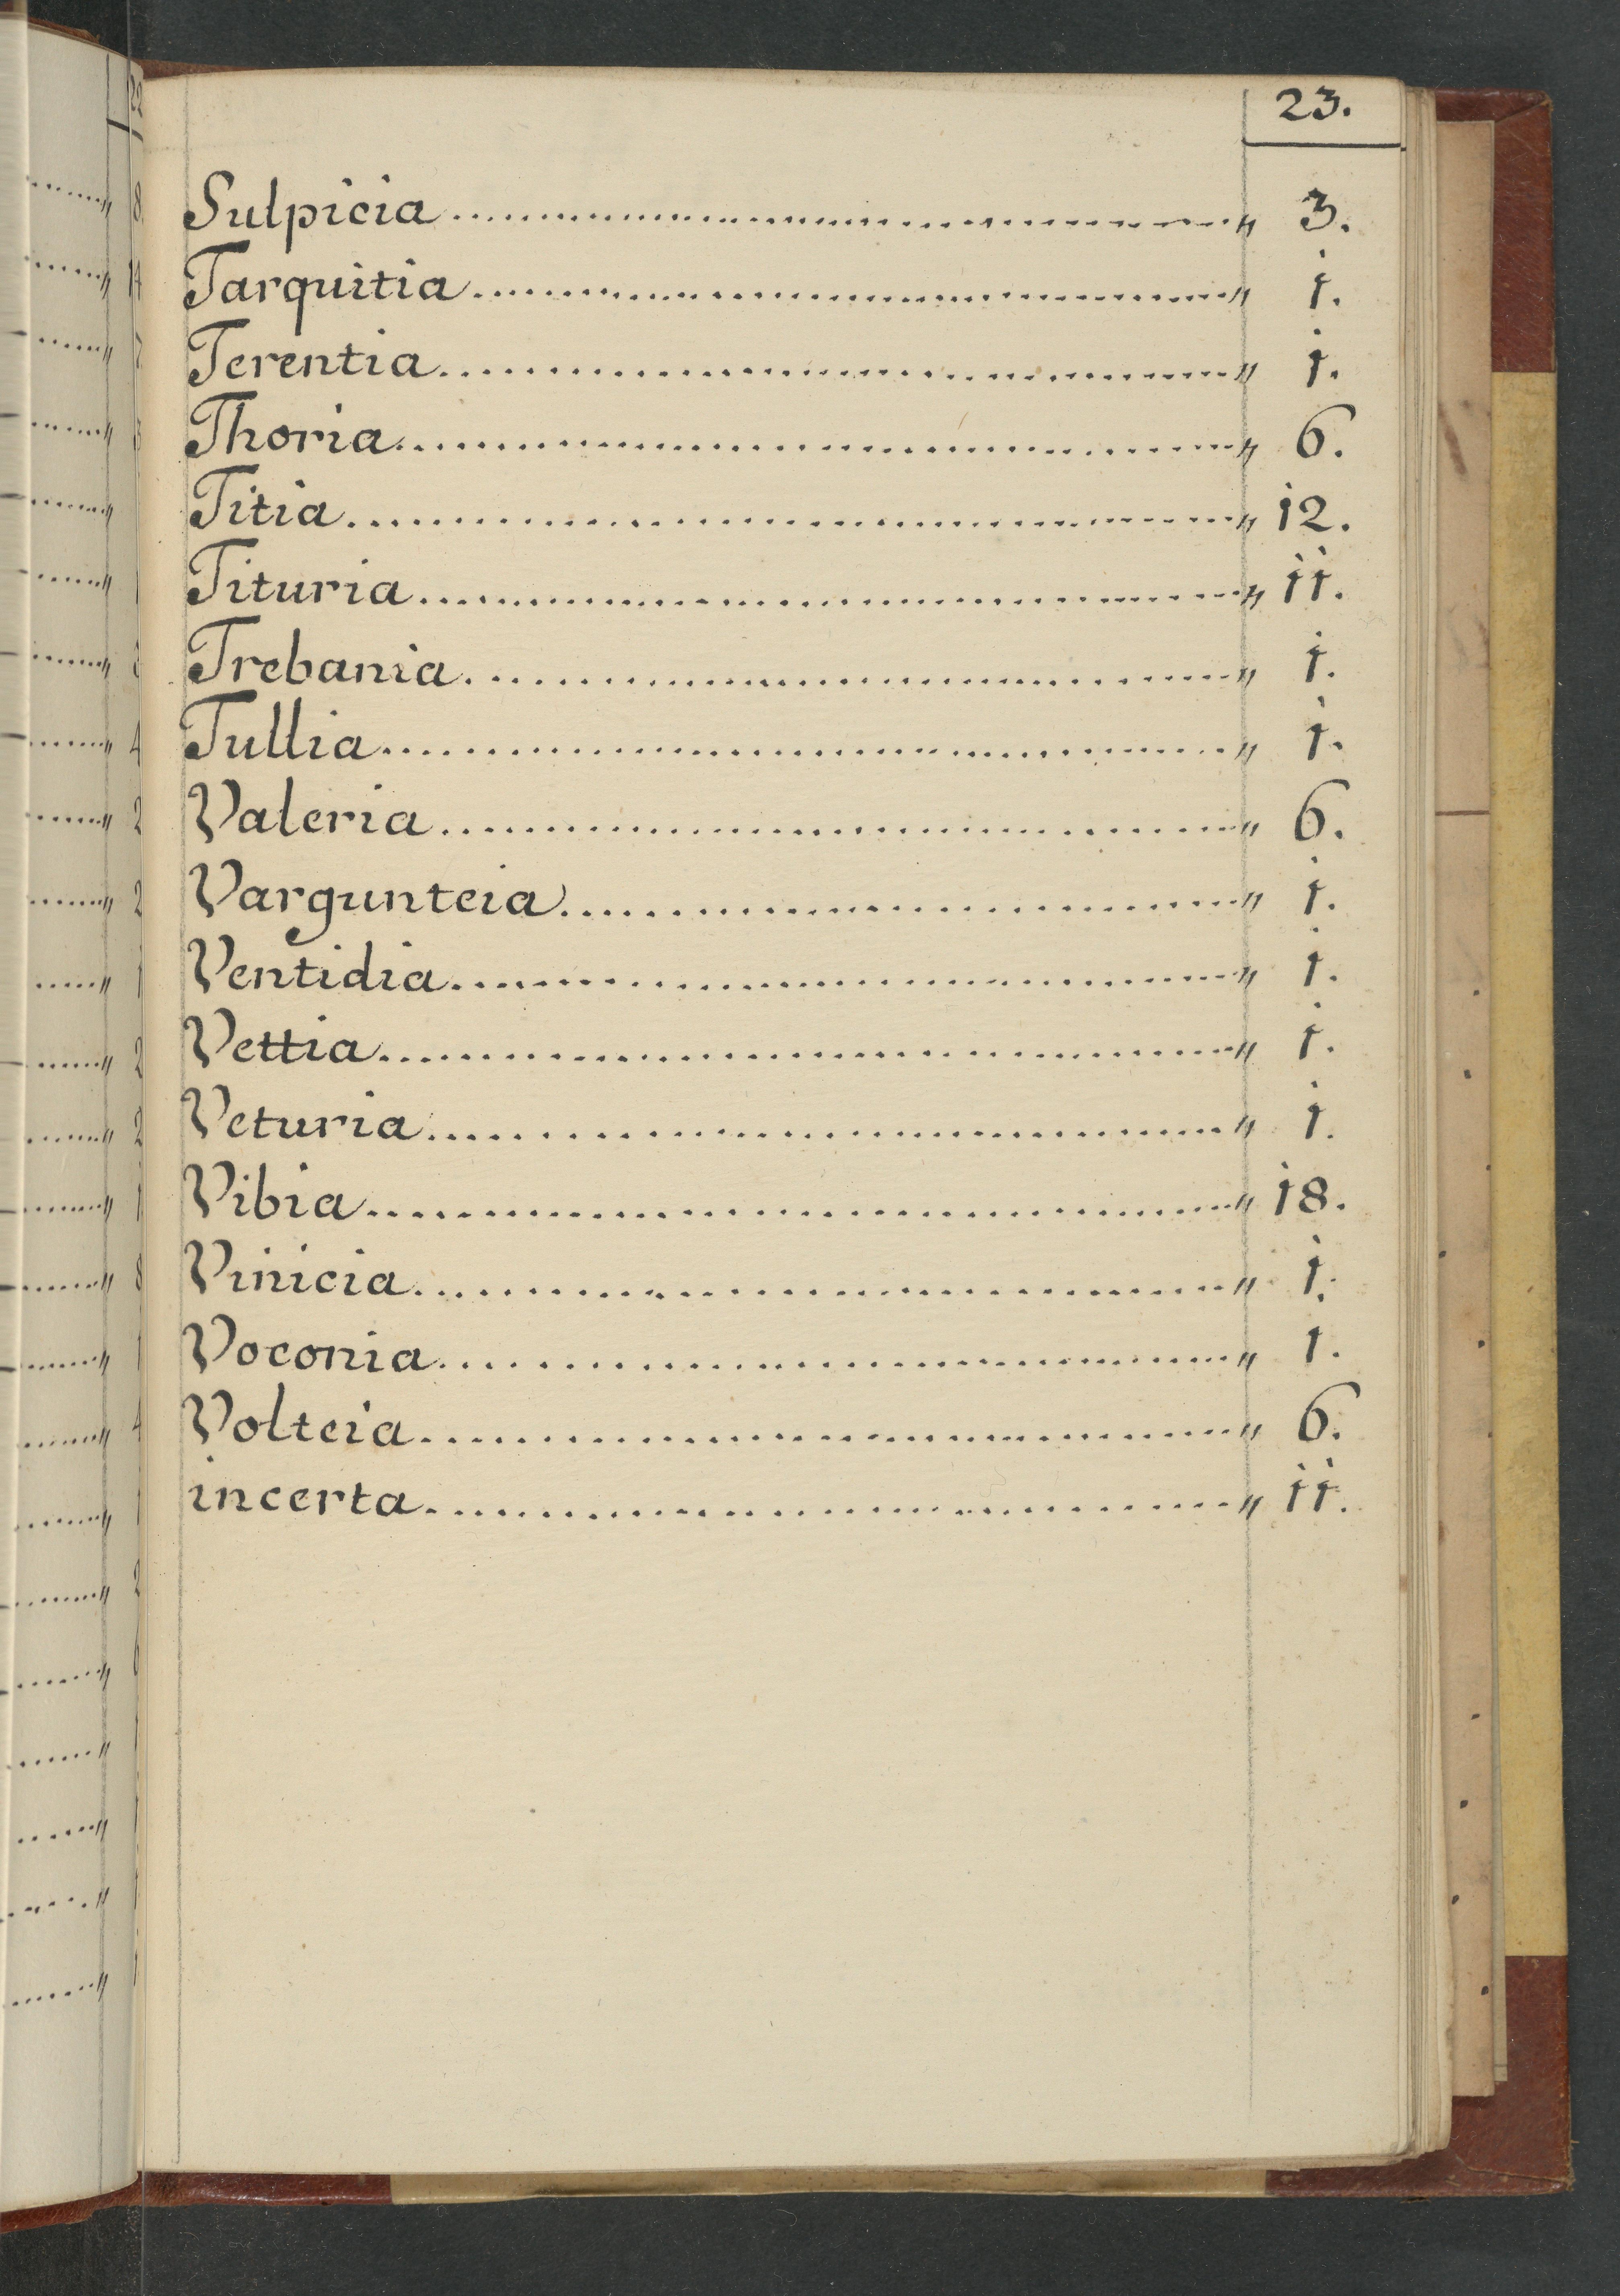 23.
Sulpicia .......... „ 3.
Tarquitia .......... „ 1.
Terentia .......... „ 1.
Thoria .......... „ 6.
Titia .......... „ 12.
Tituria .......... „ 11.
Trebania .......... „ 1.
Tullia .......... „ 1.
Valeria .......... „ 6.
Vargunteia .......... „ 1.
Ventidia .......... „ 1.
Vettia .......... „ 1.
Veturia .......... „ 1.
Vibia .......... „ 18.
Vinicia .......... „ 1.
Voconia .......... „ 1.
Volteia .......... „ 6.
incerta .......... „ 11.